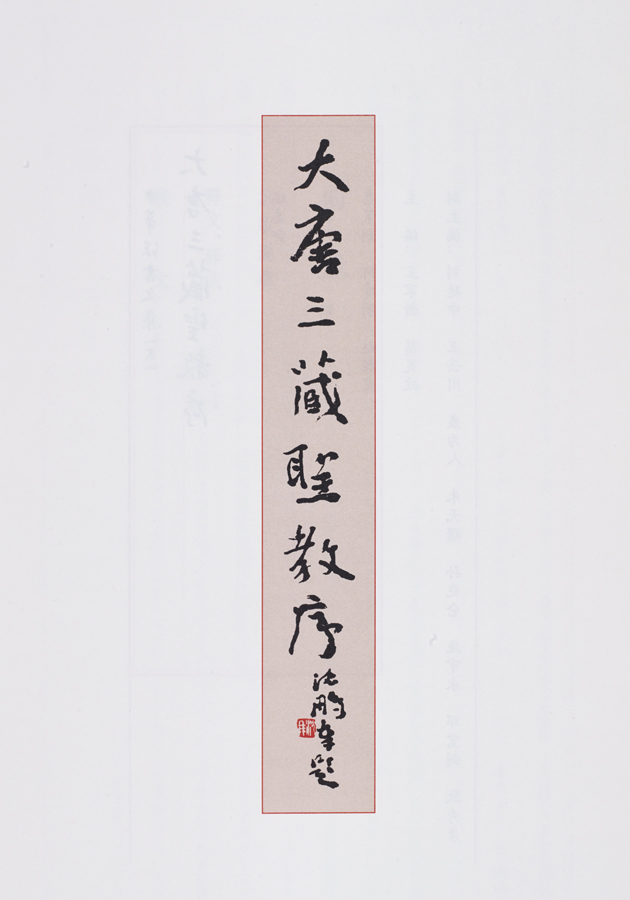 大唐三藏聖教序
沈鵬題